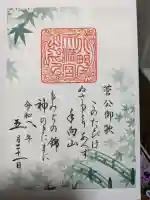 菅公御歌
このたびは
ぬさもとりあへず
手向山
もみちの錦
神のまにまに
令和八年
五月二十一日